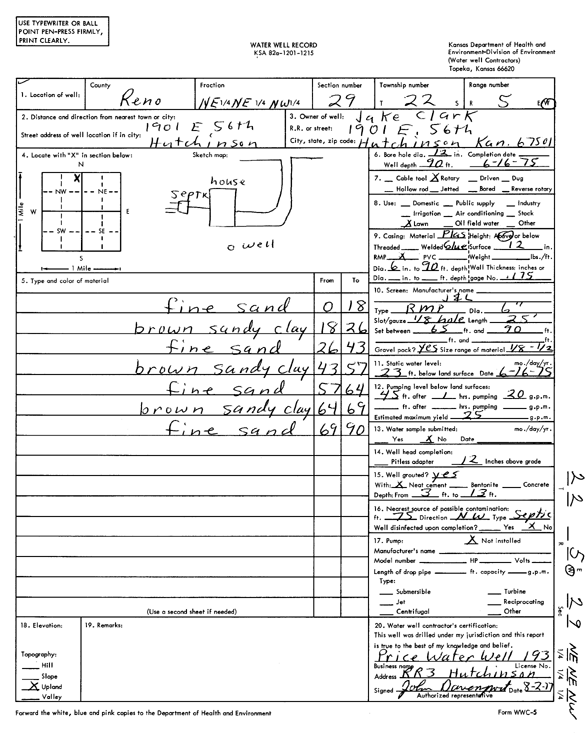 USE TYPEWRITER OR BALL
POINT PEN-PRESS FIRMLY,
PRINT CLEARLY.
WATER WELL RECORD
KSA 82a-1201-1215
Kansas Department of Health and
Environment-Division of Environment
(Water well Contractors)
Topeka, Kansas 66620
1. Location of well: County Reno Fraction NE 1/4 NE 1/4 NW 1/4 Section number 29 Township number T 22 S Range number R 5 E/W
2. Distance and direction from nearest town or city: 1901 E 56th
Street address of well location if in city: Hutchinson
3. Owner of well: Jake Clark
R.R. or street: 1901 E. 56th
City, state, zip code: Hutchinson Kan. 67501
4. Locate with "X" in section below: Sketch map:
N
X
NW NE
W E
SW SE
S
1 Mile
1 Mile
house
Septic
o well
6. Bore hole dia. 12 in. Completion date
Well depth 90 ft. 6-16-75
7. Cable tool X Rotary Driven Dug
Hollow rod Jetted Bored Reverse rotary
8. Use: Domestic Public supply Industry
Irrigation Air conditioning Stock
X Lawn Oil field water Other
9. Casing: Material Plas Height: Above or below
Threaded Welded Glue Surface 12 in.
RMP X PVC Weight lbs./ft.
Dia. 6 in. to 90 ft. depth Wall Thickness: inches or
Dia. in. to ft. depth gage No. .175
10. Screen: Manufacturer's name
Type RMP Dia. 6"
Slot/gauze 1/8 hole Length 25'
Set between 65 ft. and 90 ft.
ft. and ft.
Gravel pack? Yes Size range of material 1/8-1/2
11. Static water level: mo./day/yr.
23 ft. below land surface Date 6-16-75
12. Pumping level below land surfaces:
45 ft. after 1 hrs. pumping 20 g.p.m.
ft. after hrs. pumping g.p.m.
Estimated maximum yield 25 g.p.m.
13. Water sample submitted: mo./day/yr.
Yes X No Date
14. Well head completion:
Pitless adapter 12 Inches above grade
15. Well grouted? yes
With: X Neat cement Bentonite Concrete
Depth: From 3 ft. to 13 ft.
16. Nearest source of possible contamination:
ft. 75 Direction NW Type Septic
Well disinfected upon completion? Yes X No
17. Pump: X Not installed
Manufacturer's name
Model number HP Volts
Length of drop pipe ft. capacity g.p.m.
Type:
Submersible Turbine
Jet Reciprocating
Centrifugal Other
5. Type and color of material From To
fine sand 0 18
brown sandy clay 18 26
fine sand 26 43
brown sandy clay 43 57
fine sand 57 64
brown sandy clay 64 69
fine sand 69 90
(Use a second sheet if needed)
18. Elevation:
Topography:
Hill
Slope
X Upland
Valley
19. Remarks:
20. Water well contractor's certification:
This well was drilled under my jurisdiction and this report
is true to the best of my knowledge and belief.
Price Water Well 193
Business name License No.
Address RR3 Hutchinson
Signed John Davenport Date 8-2-77
Authorized representative
Forward the white, blue and pink copies to the Department of Health and Environment
Form WWC-5
T 22 - R 5 E W Sec 29 NE 1/4 NE 1/4 NW 1/4